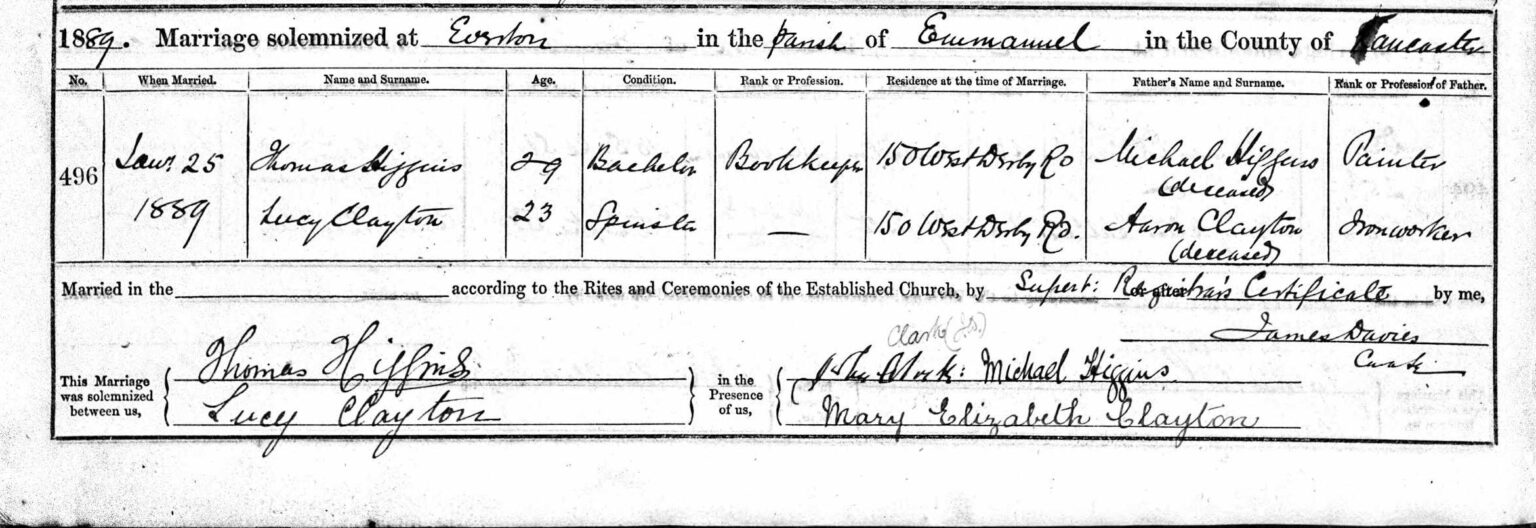 1889. Marriage solemnized at Everton in the Parish of Emmanuel in the County of Lancaster
No. When Married. Name and Surname. Age. Condition. Rank or Profession. Residence at the time of Marriage. Father's Name and Surname. Rank or Profession of Father.
496 Jany. 25 Thomas Higgins 29 Bachelor Bookkeeper 150 West Derby Rd Michael Higgins Painter
(deceased)
1889 Lucy Clayton 23 Spinster — 150 West Derby Rd. Aaron Clayton Ironworker
(deceased)
Married in the according to the Rites and Ceremonies of the Established Church, by Supert: Registrar's Certificate by me,
Clark (J.D.)
James Davies
Curate
This Marriage was solemnized between us, Thomas Higgins in the Presence of us, John Clark: Michael Higgins
Lucy Clayton Mary Elizabeth Clayton